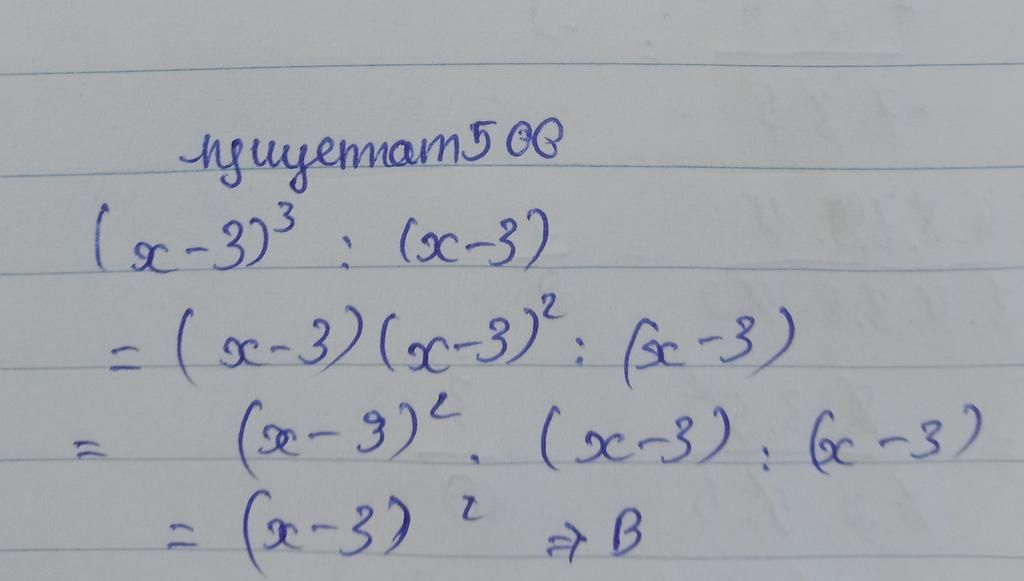 nguyennam500
(x-3)³ : (x-3)
= (x-3)(x-3)² : (x-3)
= (x-3)² . (x-3) : (x-3)
= (x-3)² ⇒ B